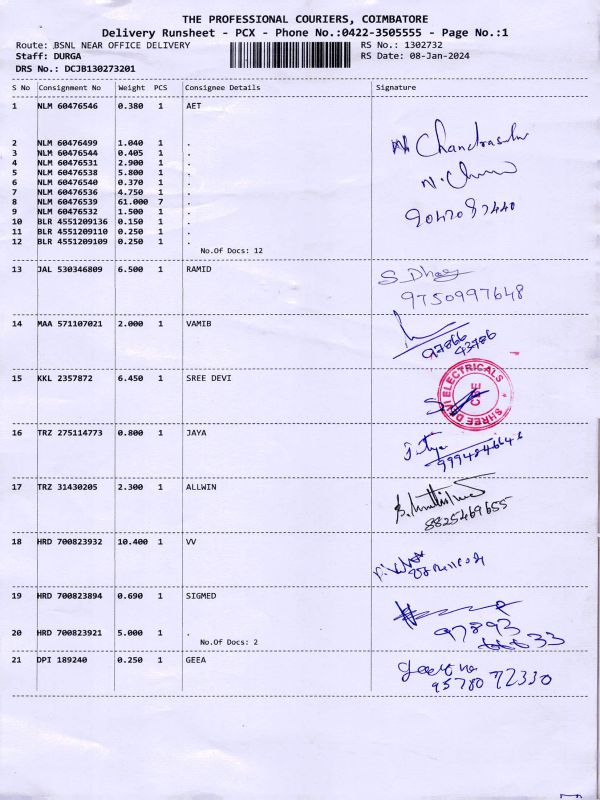 THE PROFESSIONAL COURIERS, COIMBATORE
Delivery Runsheet - PCX - Phone No.:0422-3505555 - Page No.:1
Route: BSNL NEAR OFFICE DELIVERY RS No.: 1302732
Staff: DURGA RS Date: 08-Jan-2024
DRS No.: DCJB130273201
S No Consignment No Weight PCS Consignee Details Signature
1 NLM 60476546 0.380 1 AET
2 NLM 60476499 1.040 1 .
3 NLM 60476544 0.405 1 .
4 NLM 60476531 2.900 1 .
5 NLM 60476538 5.800 1 .
6 NLM 60476540 0.370 1 .
7 NLM 60476536 4.750 1 .
8 NLM 60476539 61.000 7 .
9 NLM 60476532 1.500 1 .
10 BLR 4551209136 0.150 1 .
11 BLR 4551209110 0.250 1 .
12 BLR 4551209109 0.250 1 .
No.Of Docs: 12
13 JAL 530346809 6.500 1 RAMID
9750997648
14 MAA 571107021 2.000 1 VAMIB
97866
43786
15 KKL 2357872 6.450 1 SREE DEVI
SHREE DEVI ELECTRICALS
CBE
16 TRZ 275114773 0.800 1 JAYA
9994846646
17 TRZ 31430205 2.300 1 ALLWIN
8825469655
18 HRD 700823932 10.400 1 VV
19 HRD 700823894 0.690 1 SIGMED
97893
66633
20 HRD 700823921 5.000 1 .
No.Of Docs: 2
21 DPI 189240 0.250 1 GEEA
95780 72330